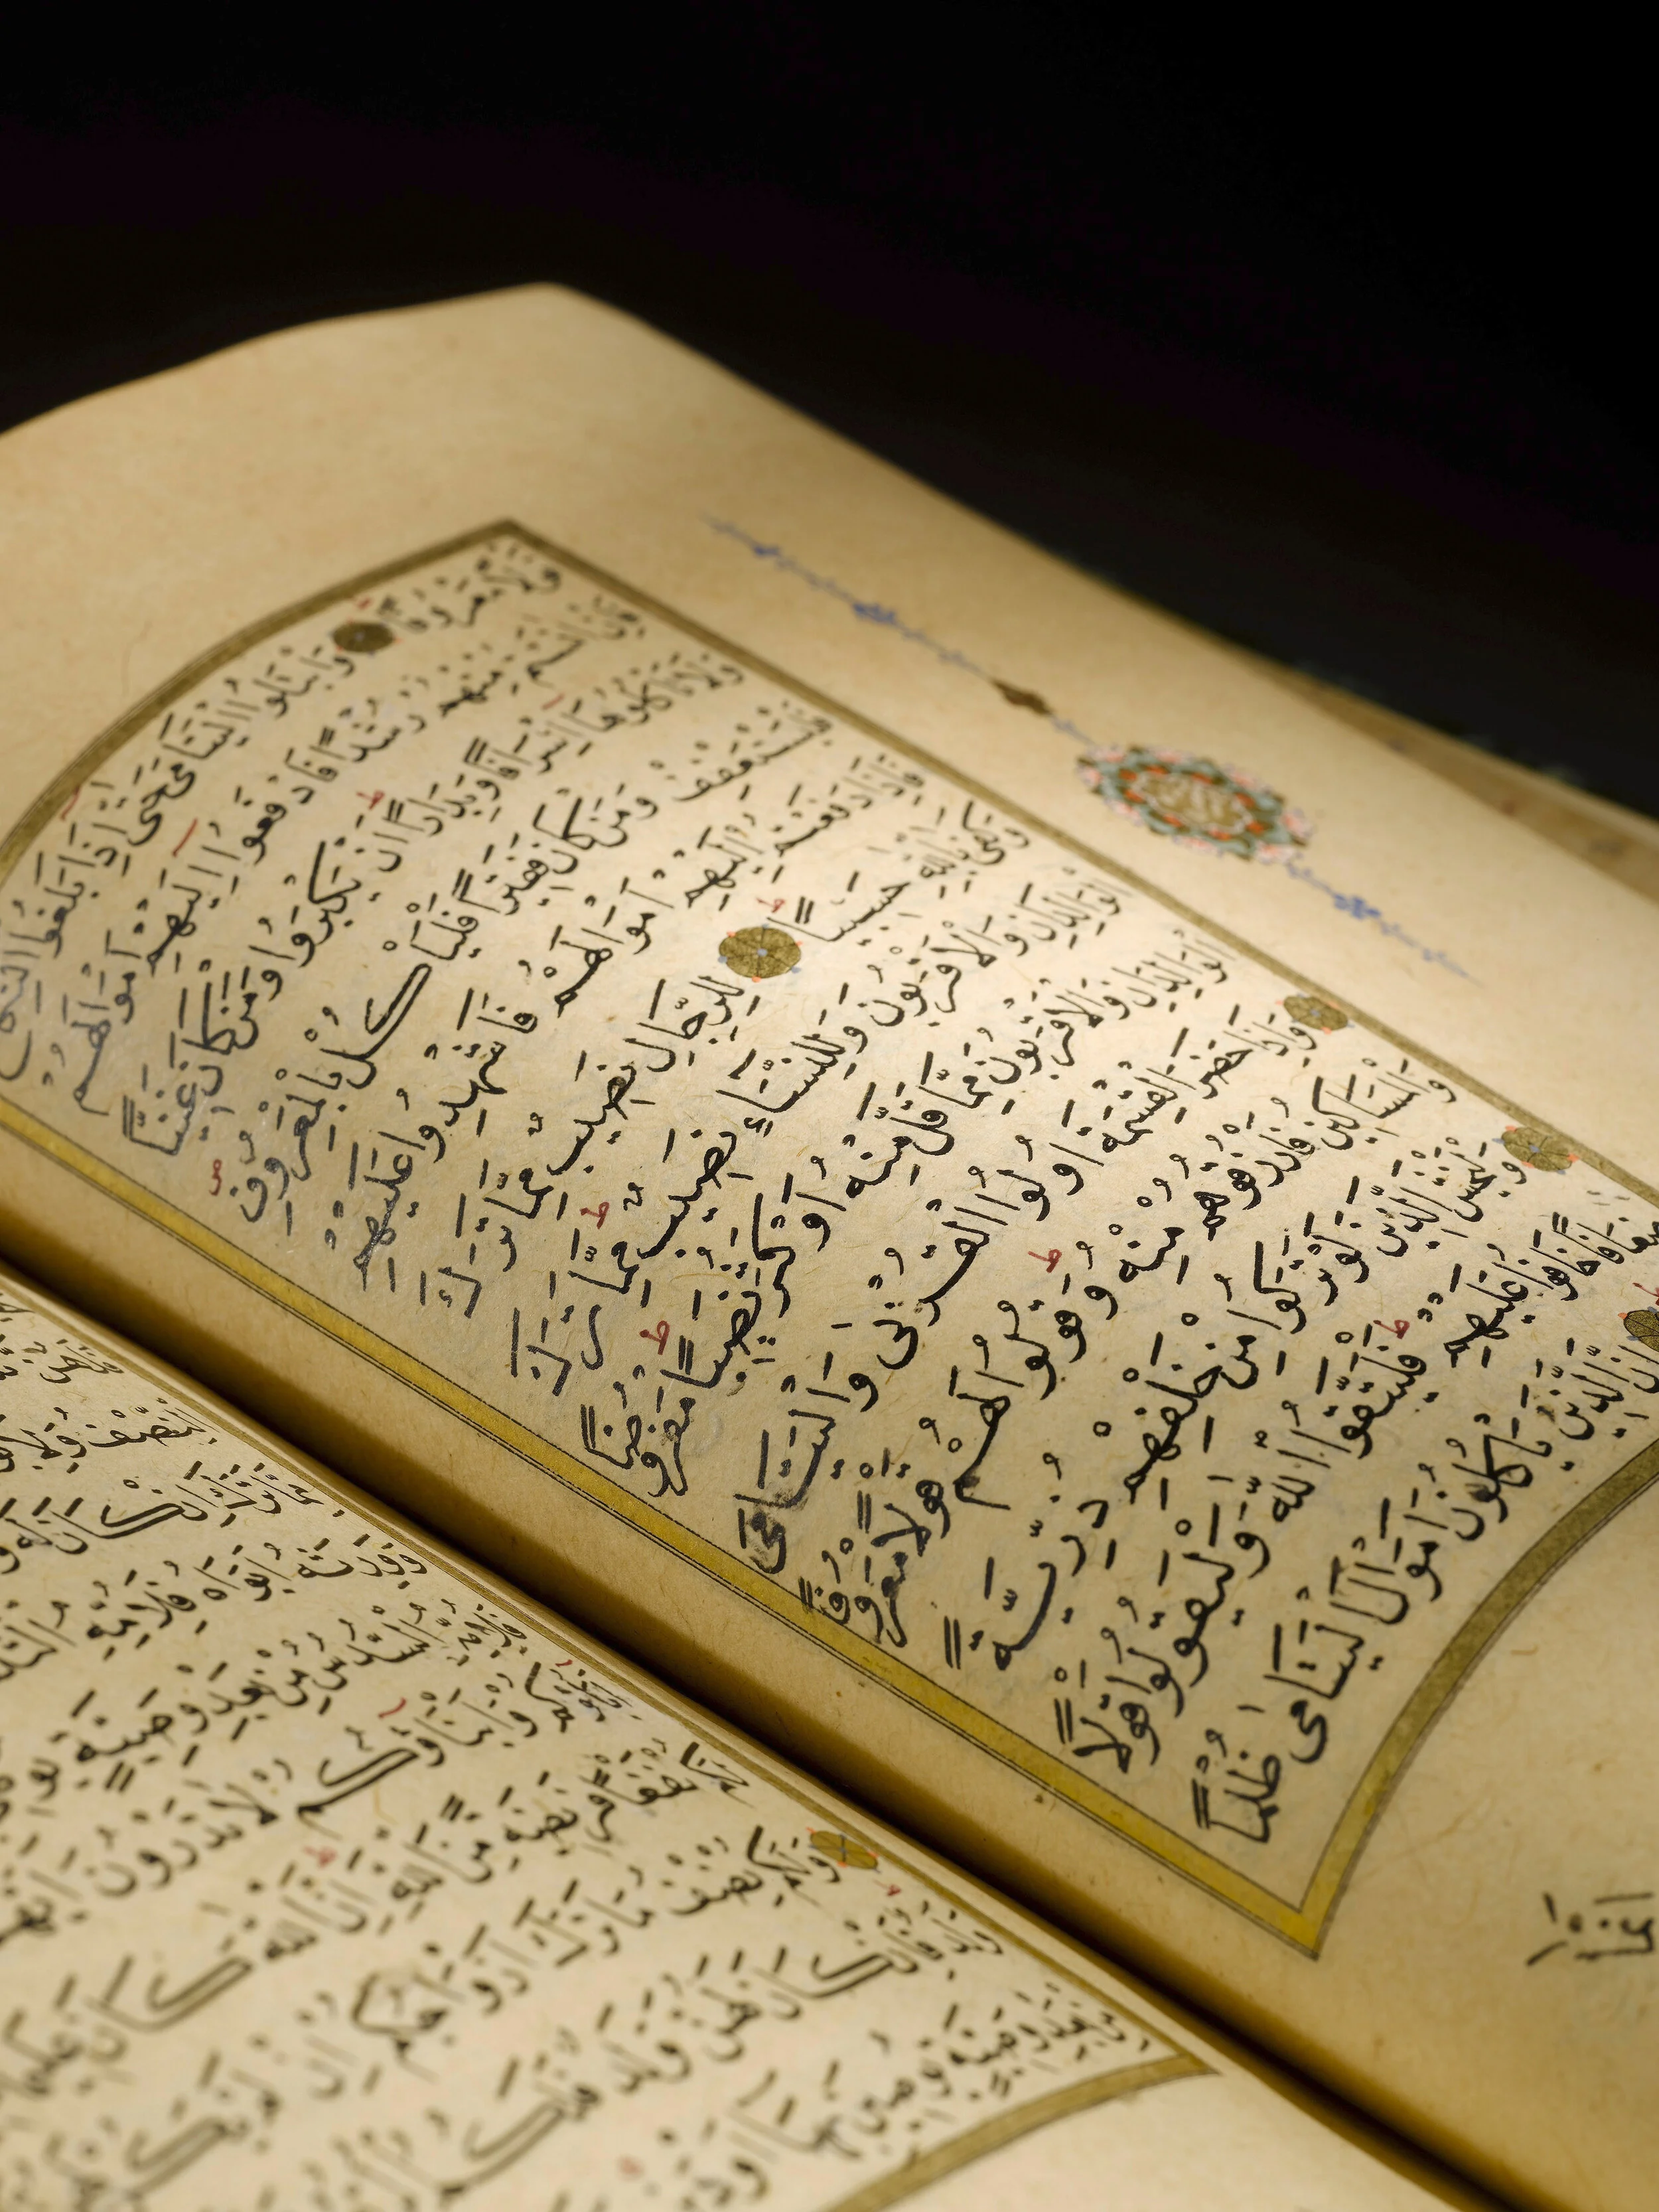 قَوْلًا مَعْرُوفًا وَابْتَلُوا الْيَتَامَى حَتَّى اِذَا بَلَغُوا النِّكَاحَ
فَاِنْ اٰنَسْتُمْ مِنْهُمْ رُشْدًا فَادْفَعُوا اِلَيْهِمْ اَمْوَالَهُمْ
وَلَا تَأْكُلُوهَا اِسْرَافًا وَبِدَارًا اَنْ يَكْبَرُوا وَمَنْ كَانَ غَنِيًّا
فَلْيَسْتَعْفِفْ وَمَنْ كَانَ فَقِيرًا فَلْيَأْكُلْ بِالْمَعْرُوفِ
فَاِذَا دَفَعْتُمْ اِلَيْهِمْ اَمْوَالَهُمْ فَاَشْهِدُوا عَلَيْهِمْ
وَكَفَى بِاللّٰهِ حَسِيبًا لِلرِّجَالِ نَصِيبٌ مِمَّا تَرَكَ
الْوَالِدَانِ وَالْاَقْرَبُونَ وَلِلنِّسَاءِ نَصِيبٌ مِمَّا تَرَكَ
الْوَالِدَانِ وَالْاَقْرَبُونَ مِمَّا قَلَّ مِنْهُ اَوْ كَثُرَ نَصِيبًا مَفْرُوضًا
وَاِذَا حَضَرَ الْقِسْمَةَ اُولُوا الْقُرْبٰى وَالْيَتَامٰى
وَالْمَسَاكِينُ فَارْزُقُوهُمْ مِنْهُ وَقُولُوا لَهُمْ قَوْلًا مَعْرُوفًا
وَلْيَخْشَ الَّذِينَ لَوْ تَرَكُوا مِنْ خَلْفِهِمْ ذُرِّيَّةً
ضِعَافًا خَافُوا عَلَيْهِمْ فَلْيَتَّقُوا اللّٰهَ وَلْيَقُولُوا قَوْلًا
اِنَّ الَّذِينَ يَأْكُلُونَ اَمْوَالَ الْيَتَامٰى ظُلْمًا
اِنَّمَا
النِّصْفُ
مِمَّا تَرَكَ اِنْ كَانَ لَهُ
وَوَرِثَهُ اَبَوَاهُ فَلِاُمِّهِ
فَلِاُمِّهِ السُّدُسُ مِنْ بَعْدِ وَصِيَّةٍ
اٰبَاؤُكُمْ وَاَبْنَاؤُكُمْ لَا تَدْرُونَ اَيُّهُمْ
نَفْعًا فَرِيضَةً مِنَ اللّٰهِ اِنَّ اللّٰهَ كَانَ عَلِيمًا
وَلَكُمْ نِصْفُ مَا تَرَكَ اَزْوَاجُكُمْ اِنْ لَمْ يَكُنْ
وَلَدٌ فَاِنْ كَانَ لَهُنَّ وَلَدٌ فَلَكُمُ
مِنْ بَعْدِ وَصِيَّةٍ يُوصِينَ بِهَا اَوْ دَيْنٍ